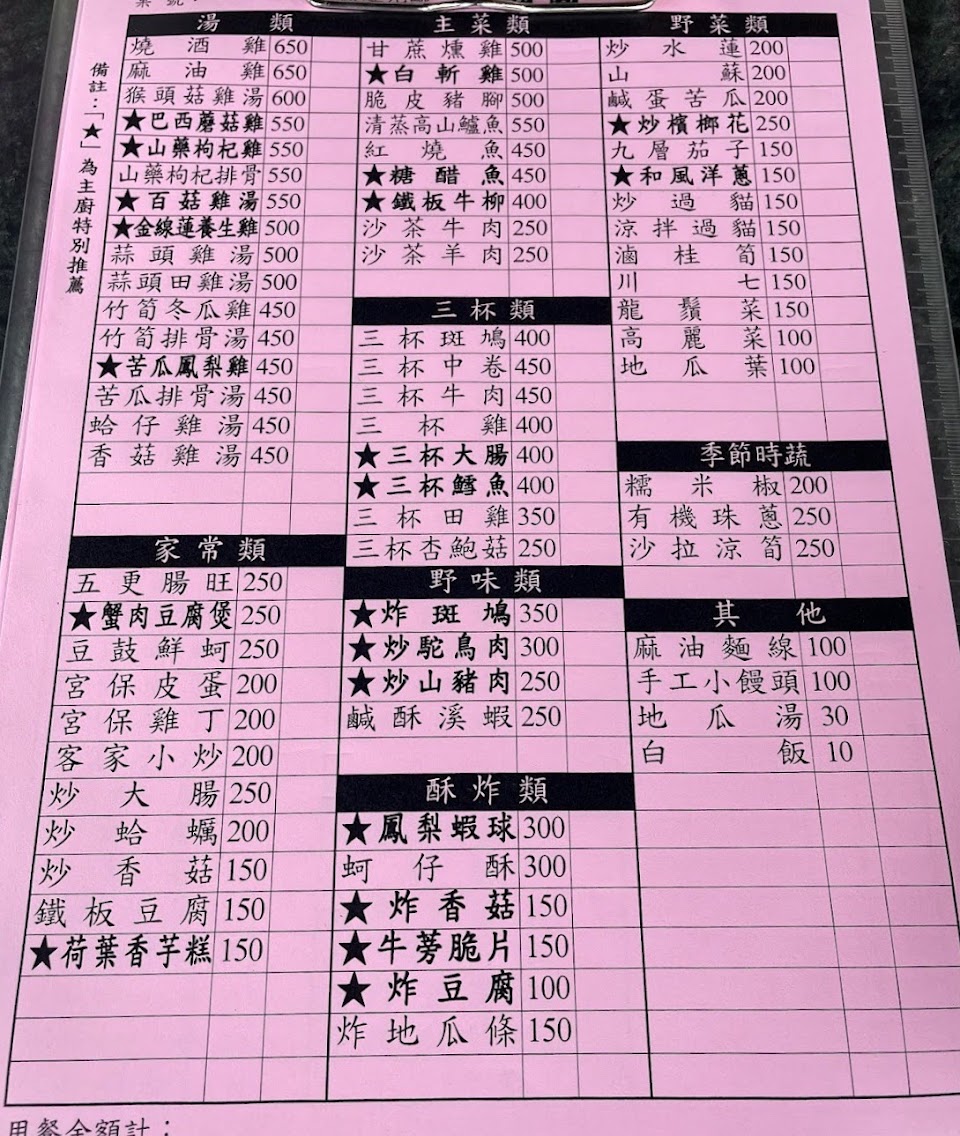 湯類
燒酒雞 650
麻油雞 650
猴頭菇雞湯 600
★巴西蘑菇雞 550
★山藥枸杞雞 550
山藥枸杞排骨 550
★百菇雞湯 550
★金線蓮養生雞 500
蒜頭雞湯 500
蒜頭田雞湯 500
竹筍冬瓜雞 450
竹筍排骨湯 450
★苦瓜鳳梨雞 450
苦瓜排骨湯 450
蛤仔雞湯 450
香菇雞湯 450
家常類
五更腸旺 250
★蟹肉豆腐煲 250
豆鼓鮮蚵 250
宮保皮蛋 200
宮保雞丁 200
客家小炒 200
炒大腸 250
炒蛤蠣 200
炒香菇 150
鐵板豆腐 150
★荷葉香芋糕 150
主菜類
甘蔗燻雞 500
★白斬雞 500
脆皮豬腳 500
清蒸高山鱸魚 550
紅燒魚 450
★糖醋魚 450
★鐵板牛柳 400
沙茶牛肉 250
沙茶羊肉 250
三杯類
三杯斑鳩 400
三杯中卷 450
三杯牛肉 450
三杯雞 400
★三杯大腸 400
★三杯鱈魚 400
三杯田雞 350
三杯杏鮑菇 250
野味類
★炸斑鳩 350
★炒駝鳥肉 300
★炒山豬肉 250
鹹酥溪蝦 250
酥炸類
★鳳梨蝦球 300
蚵仔酥 300
★炸香菇 150
★牛蒡脆片 150
★炸豆腐 100
炸地瓜條 150
野菜類
炒水蓮 200
山蘇 200
鹹蛋苦瓜 200
★炒檳榔花 250
九層茄子 150
★和風洋蔥 150
炒過貓 150
涼拌過貓 150
滷桂筍 150
川七 150
龍鬚菜 150
高麗菜 100
地瓜葉 100
季節時蔬
糯米椒 200
有機珠蔥 250
沙拉涼筍 250
其他
麻油麵線 100
手工小饅頭 100
地瓜湯 30
白飯 10
備註：「★」為主廚特別推薦
用餐金額計：